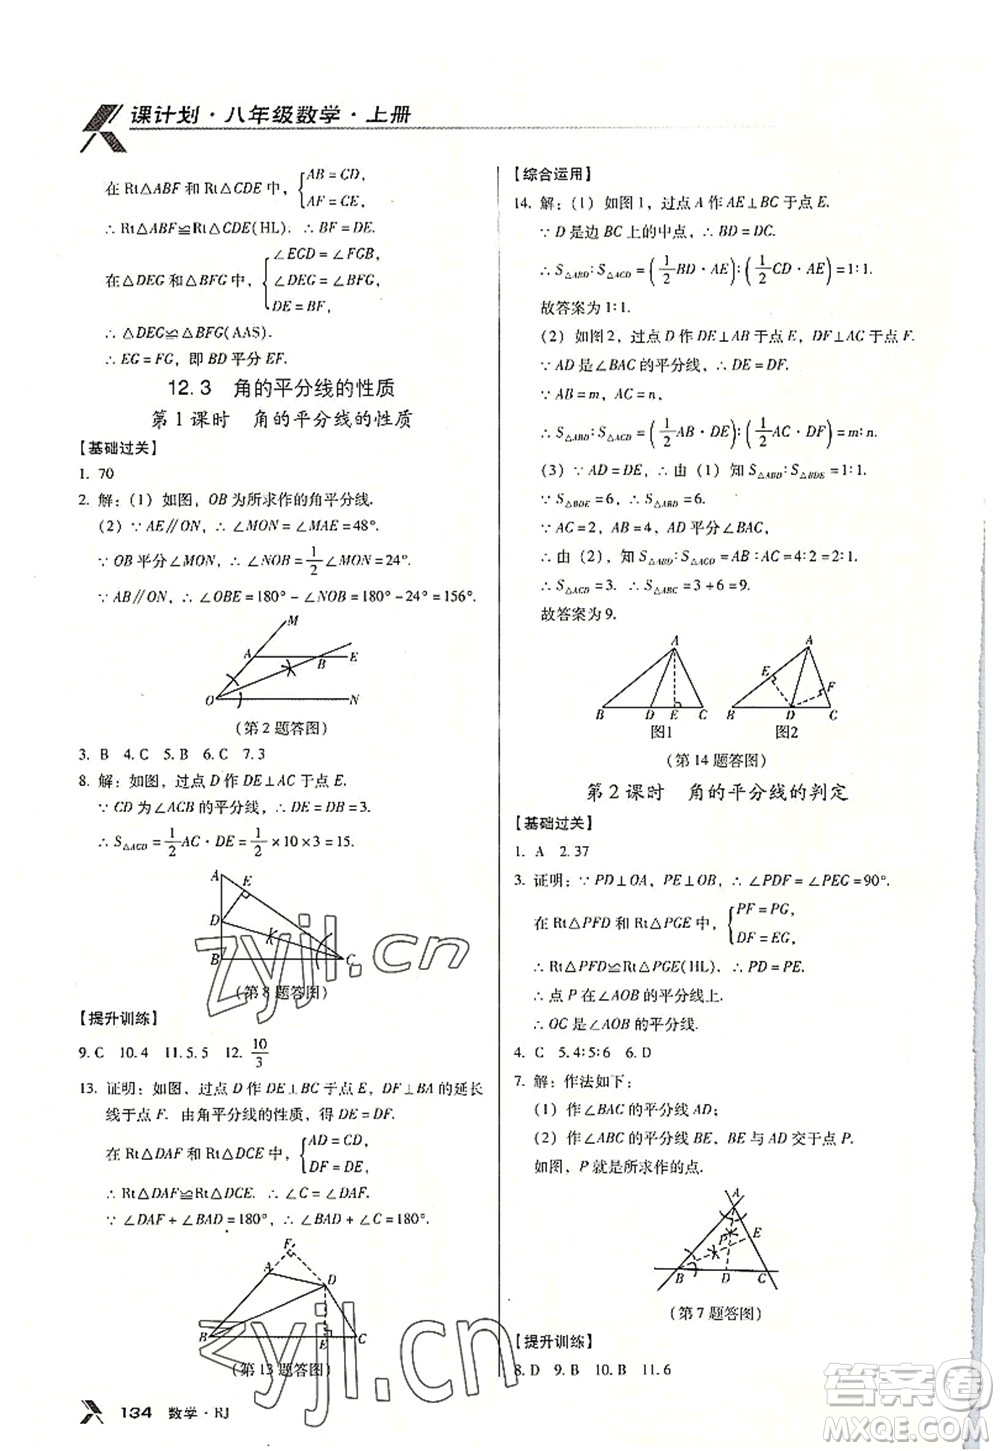 课计划·八年级数学·上册
在 Rt△ABF 和 Rt△CDE 中，{AB=CD,
AF=CE,
∴ Rt△ABF≌Rt△CDE(HL). ∴ BF=DE.
在△DEG 和△BFG 中，{∠EGD=∠FGB,
∠DEG=∠BFG,
DE=BF,
∴ △DEG≌△BFG(AAS).
∴ EG=FG, 即 BD 平分 EF.
12.3 角的平分线的性质
第1课时 角的平分线的性质
【基础过关】
1. 70
2. 解：(1) 如图，OB 为所求作的角平分线.
(2) ∵ AE∥ON, ∴ ∠MON=∠MAE=48°.
∵ OB 平分∠MON, ∴ ∠NOB=1/2∠MON=24°.
∵ AB∥ON, ∴ ∠OBE=180°-∠NOB=180°-24°=156°.
M
A B E
O N
(第2题答图)
3. B 4. C 5. B 6. C 7. 3
8. 解：如图，过点 D 作 DE⊥AC 于点 E.
∵ CD 为∠ACB 的平分线，∴ DE=DB=3.
∴ S△ACD=1/2AC·DE=1/2×10×3=15.
A E
D
B C
(第8题答图)
【提升训练】
9. C 10. 4 11. 5.5 12. 10/3
13. 证明：如图，过点 D 作 DE⊥BC 于点 E，DF⊥BA 的延长
线于点 F. 由角平分线的性质，得 DE=DF.
在 Rt△DAF 和 Rt△DCE 中，{AD=CD,
DF=DE,
∴ Rt△DAF≌Rt△DCE. ∴ ∠C=∠DAF.
∵ ∠DAF+∠BAD=180°, ∴ ∠BAD+∠C=180°.
F
A D
B E C
(第13题答图)
134 数学·RJ
【综合运用】
14. 解：(1) 如图1，过点 A 作 AE⊥BC 于点 E.
∵ D 是边 BC 上的中点，∴ BD=DC.
∴ S△ABD∶S△ACD=(1/2BD·AE)∶(1/2CD·AE)=1∶1.
故答案为1∶1.
(2) 如图2，过点 D 作 DE⊥AB 于点 E，DF⊥AC 于点 F.
∵ AD 是∠BAC 的平分线，∴ DE=DF.
∵ AB=m, AC=n,
∴ S△ABD∶S△ACD=(1/2AB·DE)∶(1/2AC·DF)=m∶n.
(3) ∵ AD=DE, ∴ 由 (1) 知 S△ABD∶S△BDE=1∶1.
∵ S△BDE=6, ∴ S△ABD=6.
∵ AC=2, AB=4, AD 平分∠BAC,
∴ 由(2), 知 S△ABD∶S△ACD=AB∶AC=4∶2=2∶1.
∴ S△ACD=3. ∴ S△ABC=3+6=9.
故答案为9.
A A
E F
B D E C B D C
图1 图2
(第14题答图)
第2课时 角的平分线的判定
【基础过关】
1. A 2. 37
3. 证明：∵ PD⊥OA, PE⊥OB, ∴ ∠PDF=∠PEG=90°.
在 Rt△PFD 和 Rt△PGE 中，{PF=PG,
DF=EG,
∴ Rt△PFD≌Rt△PGE(HL). ∴ PD=PE.
∴ 点 P 在∠AOB 的平分线上.
∴ OC 是∠AOB 的平分线.
4. C 5. 4∶5∶6 6. D
7. 解：作法如下：
(1) 作∠BAC 的平分线 AD；
(2) 作∠ABC 的平分线 BE，BE 与 AD 交于点 P.
如图，P 就是所求作的点.
A
P E
B D C
(第7题答图)
【提升训练】
8. D 9. B 10. B 11. 6
zyjl.cn
zyjl.cn
答案圈
MXQE.COM